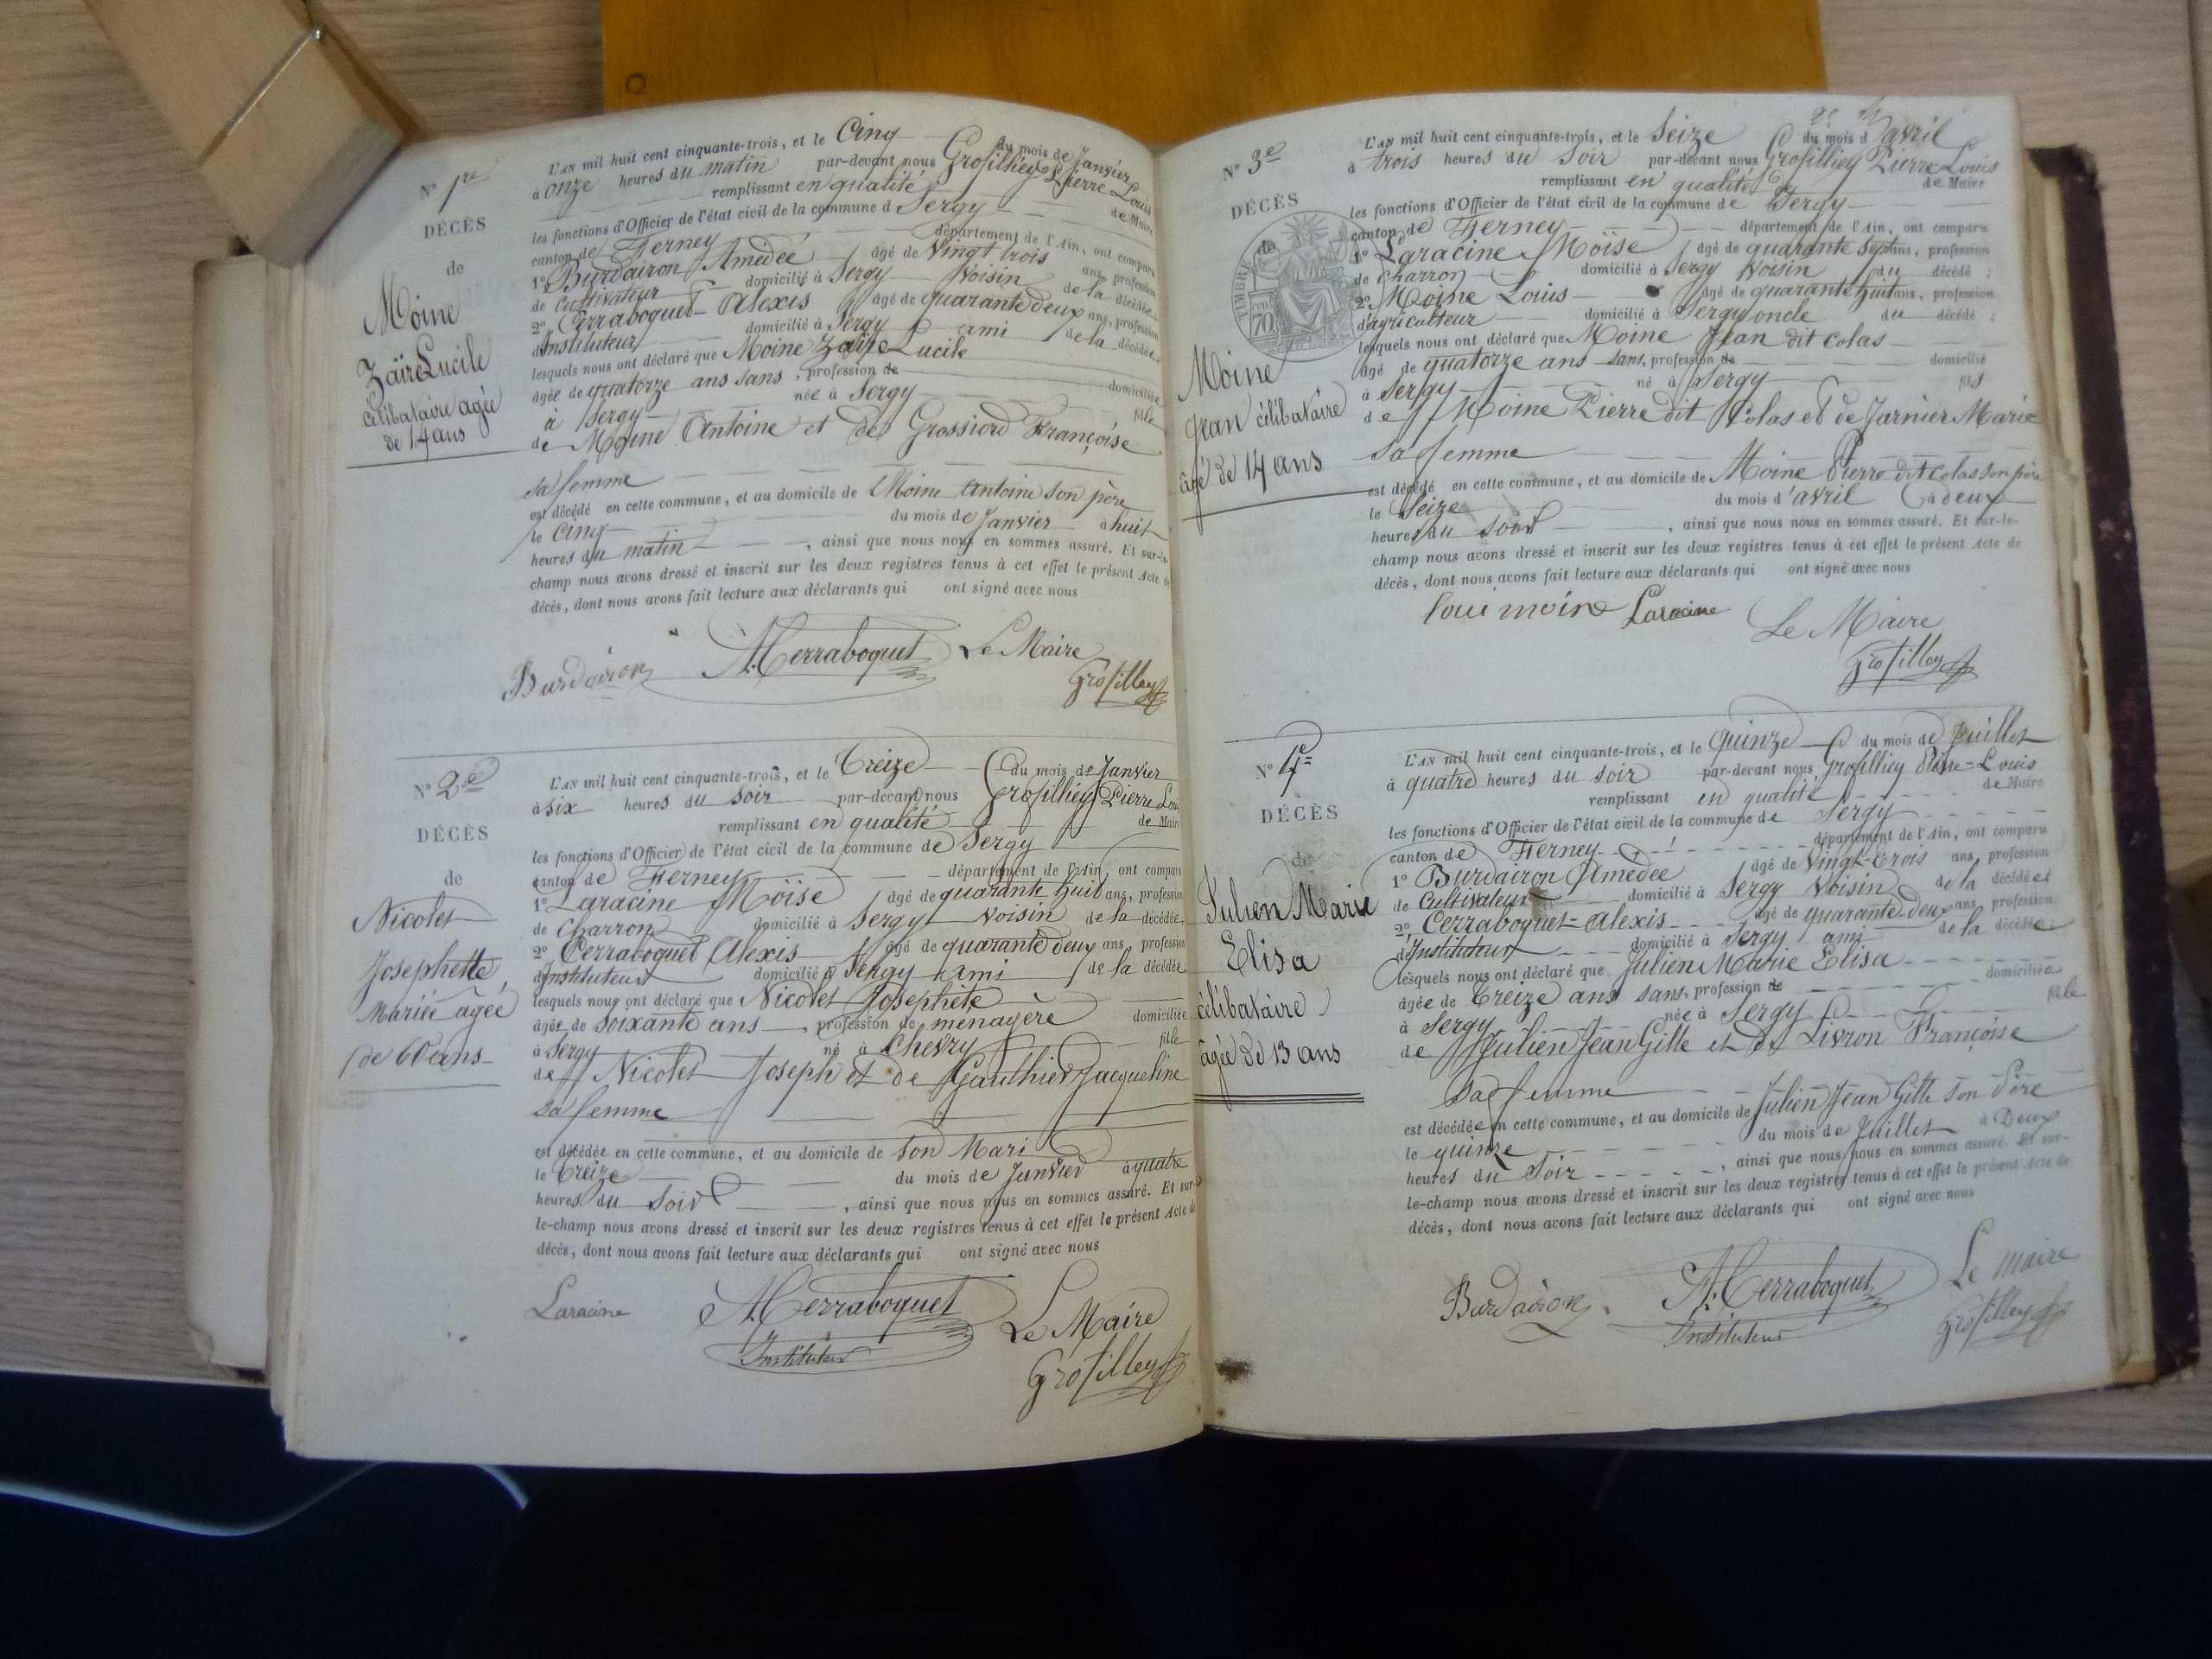 N° 1re
DÉCÈS
de
Moine
Zaïre Lucile
célibataire agée
de 14 ans
L'AN mil huit cent cinquante-trois, et le Cinq du mois de Janvier
à onze heures du matin par-devant nous Grosilliey Pierre Louis
remplissant en qualité de Maire
les fonctions d'Officier de l'état civil de la commune d Sergy
canton de Ferney département de l'Ain, ont comparu
1° Burdairon Amédée âgé de vingt trois ans, profession
de cultivateur domicilié à Sergy voisin de la décédée
2° Cerraboquet Alexis âgé de quarante deux ans, profession
d'instituteur domicilié à Sergy ami de la décédée
lesquels nous ont déclaré que Moine Zaïre Lucile
âgée de quatorze ans sans, profession de domiciliée
à Sergy née à Sergy fille
de Moine Antoine et de Grossiord Françoise
sa femme
est décédé en cette commune, et au domicile de Moine Antoine son père
le cinq du mois de Janvier à huit
heures du matin, ainsi que nous nous en sommes assuré. Et sur-le-
champ nous avons dressé et inscrit sur les deux registres tenus à cet effet le présent Acte de
décès, dont nous avons fait lecture aux déclarants qui ont signé avec nous
Burdairon A. Cerraboquet Le Maire
Grosilley
N° 2e
DÉCÈS
de
Nicolet
Josephette
Mariée agée
de 60 ans
L'AN mil huit cent cinquante-trois, et le Treize du mois de Janvier
à six heures du soir par-devant nous Grosilliey Pierre Lou
remplissant en qualité de Maire
les fonctions d'Officier de l'état civil de la commune de Sergy
canton de Ferney département de l'Ain, ont comparu
1° Laracine Moïse âgé de quarante huit ans, profession
de Charron domicilié à Sergy voisin de la décédée,
2° Cerraboquet Alexis âgé de quarante deux ans, profession
d'instituteur domicilié à Sergy ami de la décédée
lesquels nous ont déclaré que Nicolet Josephète
âgée de soixante ans, profession de ménagère domiciliée
à Sergy né à Chevry fille
de Nicolet Joseph et de Gauthier Jacqueline
sa femme
est décédée en cette commune, et au domicile de son Mari
le treize du mois de Janvier à quatre
heures du soir, ainsi que nous nous en sommes assuré. Et sur-
le-champ nous avons dressé et inscrit sur les deux registres tenus à cet effet le présent Acte de
décès, dont nous avons fait lecture aux déclarants qui ont signé avec nous
Laracine A. Cerraboquet Le Maire
Instituteur Grosilley
N° 3e
DÉCÈS
de
TIMBRE
70
Moine
Jean célibataire
âgé de 14 ans
L'AN mil huit cent cinquante-trois, et le Seize du mois d'avril
à trois heures du soir par-devant nous Grosilliey Pierre Louis
remplissant en qualité de Maire
les fonctions d'Officier de l'état civil de la commune de Sergy
canton de Ferney département de l'Ain, ont comparu
1° Laracine Moïse âgé de quarante sept ans, profession
de charron domicilié à Sergy voisin du décédé ;
2° Moine Louis âgé de quarante huit ans, profession
d'agriculteur domicilié à Sergy oncle du décédé ;
lesquels nous ont déclaré que Moine Jean dit Colas
âgé de quatorze ans sans, profession de domicilié
à Sergy né à Sergy fils
de Moine Pierre dit Colas et de Jarnier Marie
sa femme
est décédé en cette commune, et au domicile de Moine Pierre dit Colas son père
le Seize du mois d'avril à deux
heures du soir, ainsi que nous nous en sommes assuré. Et sur-le-
champ nous avons dressé et inscrit sur les deux registres tenus à cet effet le présent Acte de
décès, dont nous avons fait lecture aux déclarants qui ont signé avec nous
loui moine Laracine Le Maire
Grosilley
N° 4e
DÉCÈS
de
Julien Marie
Elisa
célibataire
âgée de 13 ans
L'AN mil huit cent cinquante-trois, et le quinze du mois de Juillet
à quatre heures du soir par-devant nous Grosilliey Pierre-Louis
remplissant en qualité de Maire
les fonctions d'Officier de l'état civil de la commune de Sergy
canton de Ferney département de l'Ain, ont comparu
1° Burdairon Amédée âgé de vingt-trois ans, profession
de cultivateur domicilié à Sergy voisin de la décédée
2° Cerraboquet-Alexis âgé de quarante-deux ans, profession
d'Instituteur domicilié à Sergy ami de la décédée
lesquels nous ont déclaré que Julien Marie Elisa
âgée de treize ans sans, profession de domiciliée
à Sergy née à Sergy fille
de Julien Jean Gille et de Livron Françoise
sa femme
est décédée en cette commune, et au domicile de Julien Jean Gille son père
le quinze du mois de Juillet à Deux
heures du Soir, ainsi que nous nous en sommes assuré. Et sur-
le-champ nous avons dressé et inscrit sur les deux registres tenus à cet effet le présent Acte de
décès, dont nous avons fait lecture aux déclarants qui ont signé avec nous
Burdairon A. Cerraboquet Le maire
Instituteur Grosilley